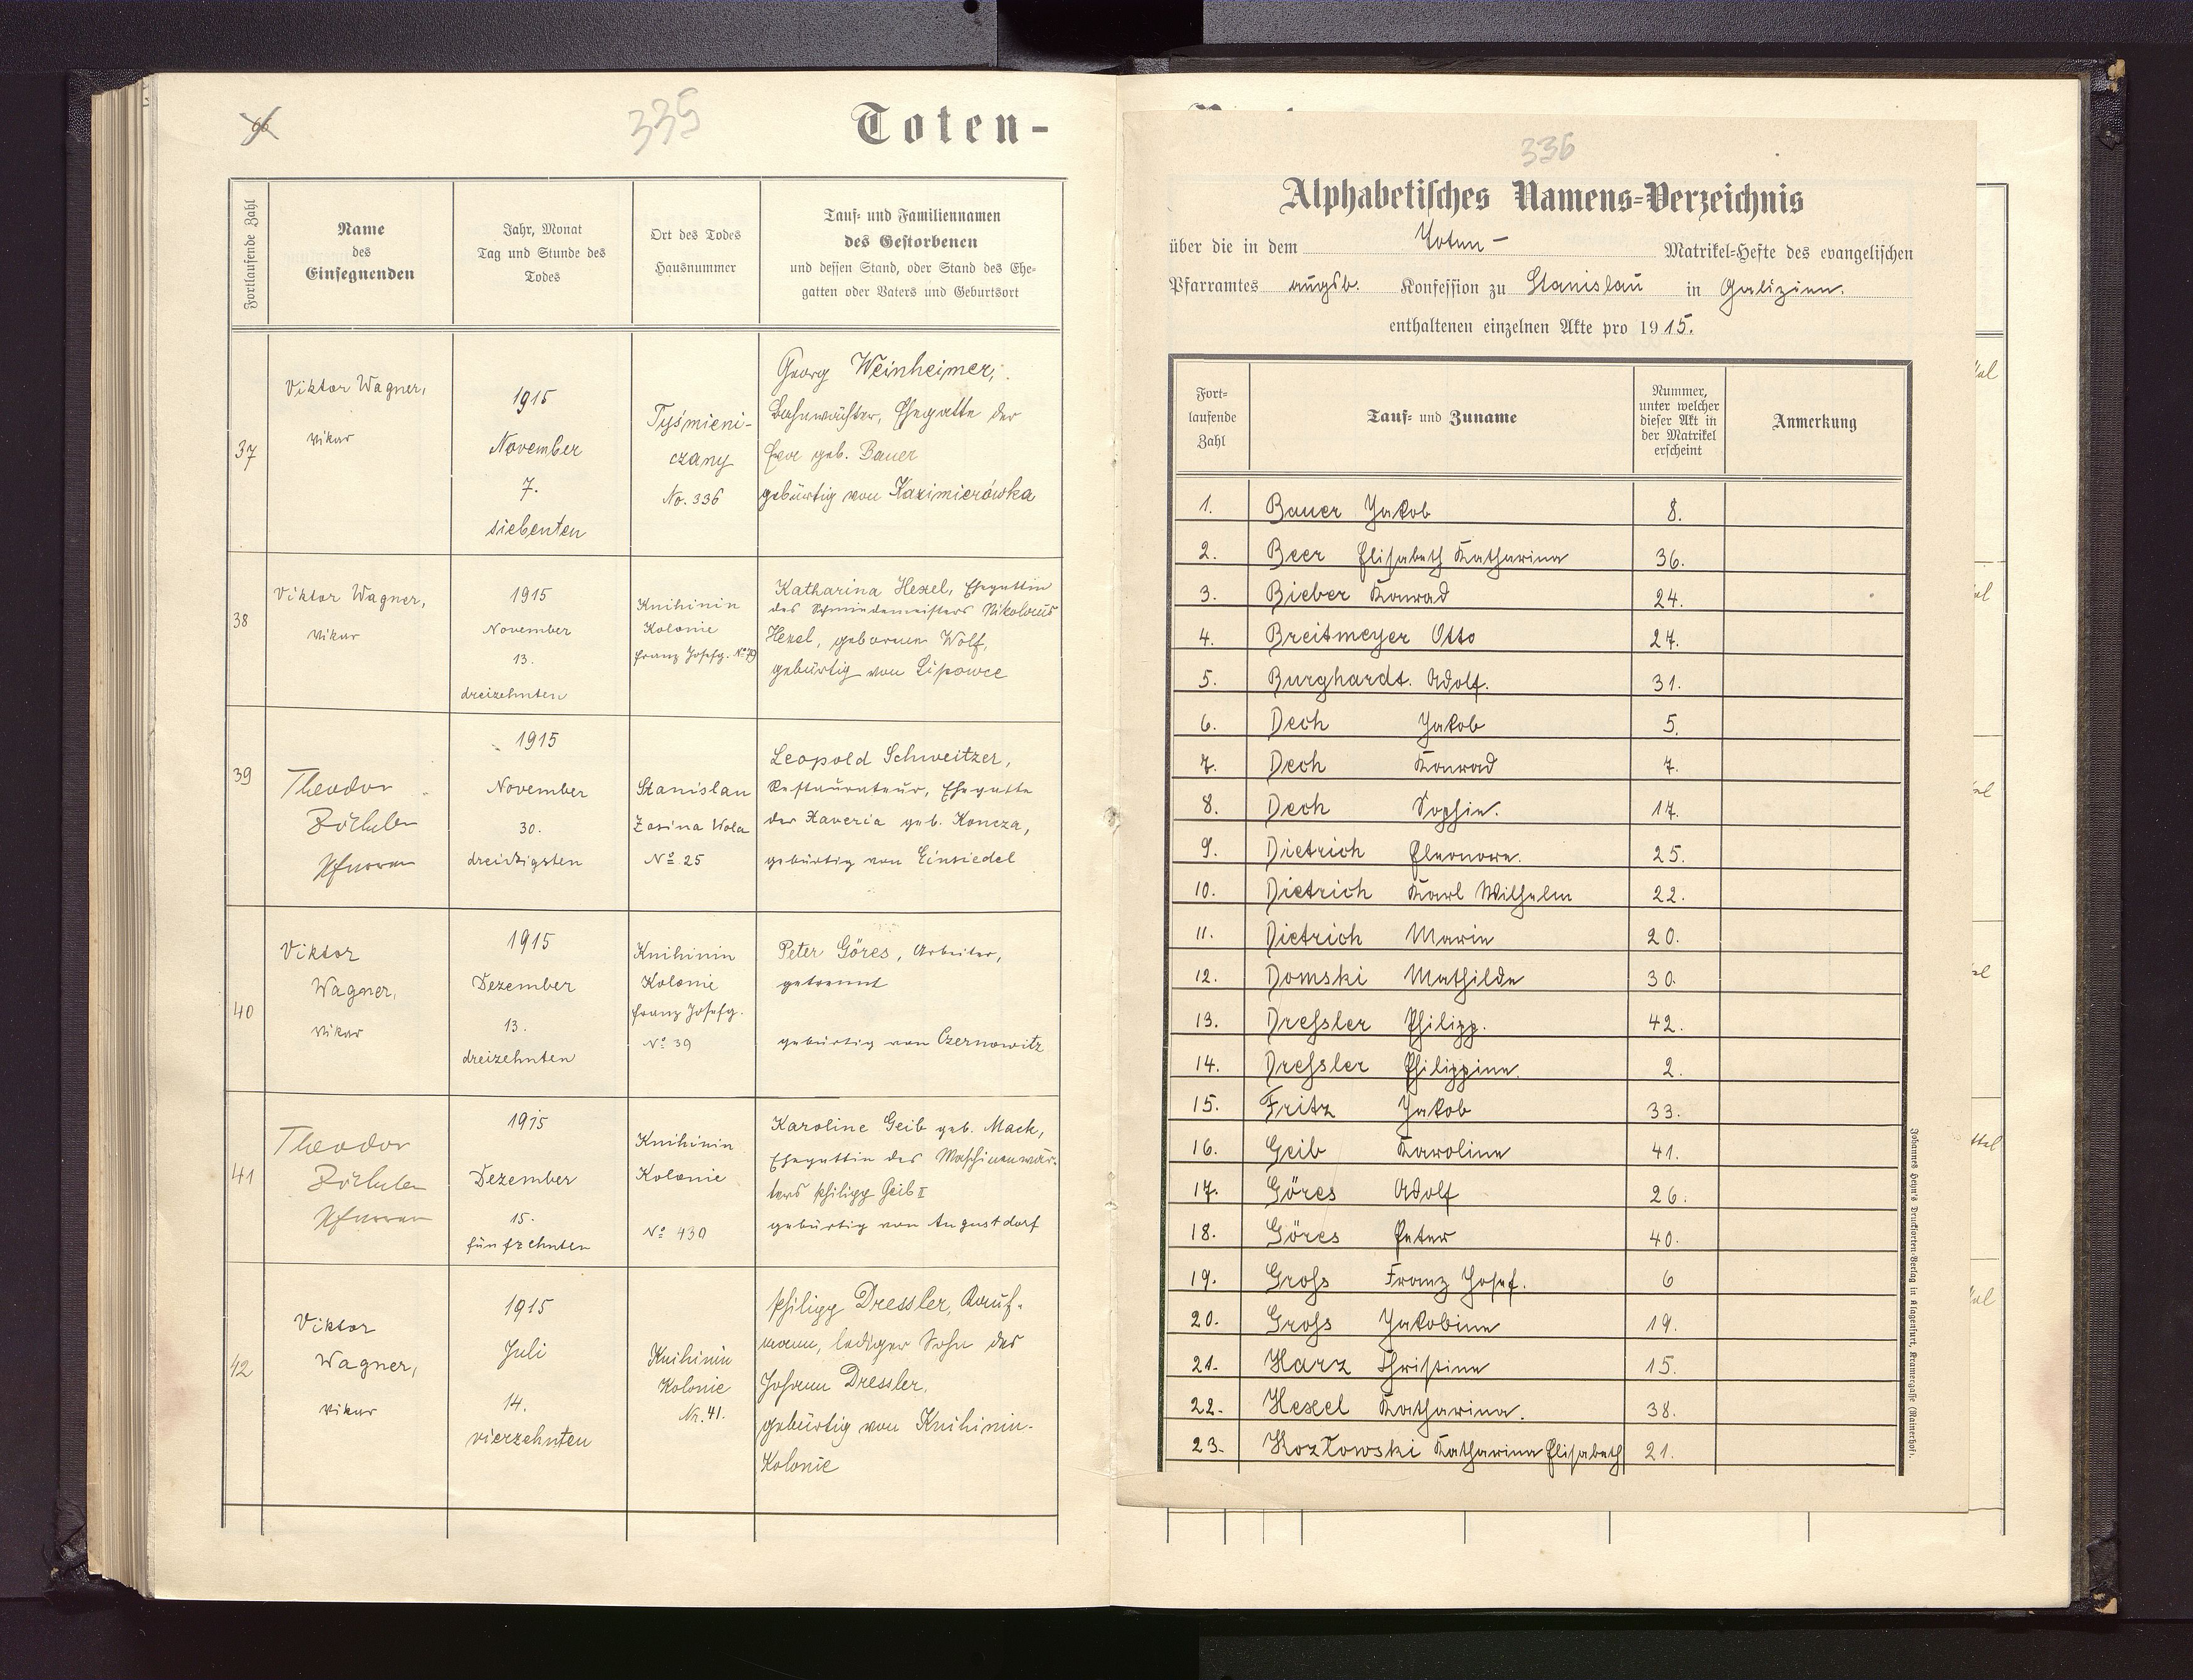 335
Toten-
Fortlaufende Zahl
Name
des
Einsegnenden
Jahr, Monat
Tag und Stunde des
Todes
Ort des Todes
Hausnummer
Tauf- und Familiennamen
des Gestorbenen
und dessen Stand, oder Stand des Ehe-
gatten oder Vaters und Geburtsort
37
Viktor Wagner,
Vikar
1915
November
7.
siebenten
Tyśmieni-
czany
No. 336
Georg Weinheimer,
Bahnwächter, Ehegatte der
Eva geb. Bauer
gebürtig von Kazimierówka
38
Viktor Wagner,
Vikar
1915
November
13.
dreizehnten
Knihinin
Kolonie
Franz Josefg. No 79
Katharina Hexel, Ehegattin
des Schmiedemeisters Nikolaus
Hexel, geborene Wolf,
gebürtig von Lipowce
39
Theodor
Zöckler
Pfarrer
1915
November
30.
dreißigsten
Stanislau
Zosina Wola
No 25
Leopold Schweitzer,
Restaurateur, Ehegatte
der Xaveria geb. Koncza,
gebürtig von Einsiedel
40
Viktor
Wagner,
Vikar
1915
Dezember
13.
dreizehnten
Knihinin
Kolonie
Franz Josefg.
No 39
Peter Göres, Arbeiter,
getrennt
gebürtig von Czernowitz
41
Theodor
Zöckler
Pfarrer
1915
Dezember
15.
fünfzehnten
Knihinin
Kolonie
No 430
Karoline Geib geb. Mack,
Ehegattin des Maschinenwär-
ters Philipp Geib II
gebürtig von Augustdorf
42
Viktor
Wagner,
Vikar
1915
Juli
14.
vierzehnten
Knihinin
Kolonie
Nr. 41.
Philipp Dressler, Kauf-
mann, lediger Sohn des
Johann Dressler,
gebürtig von Knihinin-
Kolonie
336
Alphabetisches Namens-Verzeichnis
über die in dem Toten- Matrikel-Hefte des evangelischen
Pfarramtes augsb. Konfession zu Stanislau in Galizien.
enthaltenen einzelnen Akte pro 1915.
Fort-
laufende
Zahl
Tauf- und Zuname
Nummer,
unter welcher
dieser Akt in
der Matrikel
erscheint
Anmerkung
1. Bauer Jakob 8.
2. Beer Elisabeth Katharina 36.
3. Bieber Konrad 24.
4. Breitmeyer Otto 27.
5. Burghardt. Adolf. 31.
6. Dech Jakob 5.
7. Dech Konrad 7.
8. Dech Sophie. 17.
9. Dietrich Eleonore. 25.
10. Dietrich Karl Wilhelm 22.
11. Dietrich Marie 20.
12. Domski Mathilde 30.
13. Dreßler Philipp. 42.
14. Dreßler Philippine. 2.
15. Fritz Jakob 33.
16. Geib Karoline 41.
17. Göres Adolf 26.
18. Göres Peter 40.
19. Groß Franz Josef. 6
20. Groß Jakobine 19.
21. Harz Christine 15.
22. Hexel Katharina. 38.
23. Kozłowski Katharina Elisabeth 21.
Johannes Heyn's Drucksorten-Verlag in Klagenfurt, Kramergasse (Rainerhof).